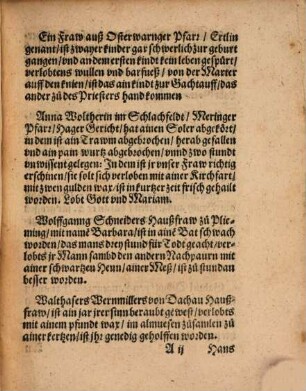 Ein Fraw auß Osterwarnger Pfarr / Ertlin
genant / ist zwayer kinder gar schwerlich zur geburt
gangen / vnd an dem ersten kindt kein leben gespürt /
verlobtens wullen vnd barfueß / von der Marter
auff den knien / ist das ain kindt zur Gachtauff / das
ander zů des Priesters hand kommen
Anna Woltherin im Schlachfeldt / Meringer
Pfarr / Hager Gericht / hat ainen Soler gekört /
in dem ist ain Trawm abgebrochen / herab gefallen
vnd ain pain wurtz abgebrochen / vnnd zwo stundt
vnwissent gelegen: In dem ist jr vnser Fraw richtig
erschinen / sie solt sich verloben mit ainer Kirchfart /
mit zwen gulden wax / ist in kurtzer zeit frisch gehailt
worden. Lobt Gott vnd Mariam.
Wolffganng Schneiders Haußfraw zů Plie-
ming / mit namē Barbara / ist in ainē Bat schwach
worden / das mans drey stund für Todt geacht / ver-
lobts jr Mann sambd den andern Nachpaurn mit
ainer schwartzen Henn / ainer Meß / ist zů stundan
besser worden.
Walthasers Wernmillers von Dachau Hauß-
fraw / ist ain jar jrer sinn beraubt gewest / verlobts
mit ainem pfundt wax / im almuesen zůsamlen zů
ainer kertzen / ist jhr genedig geholffen worden.
A ij Hans